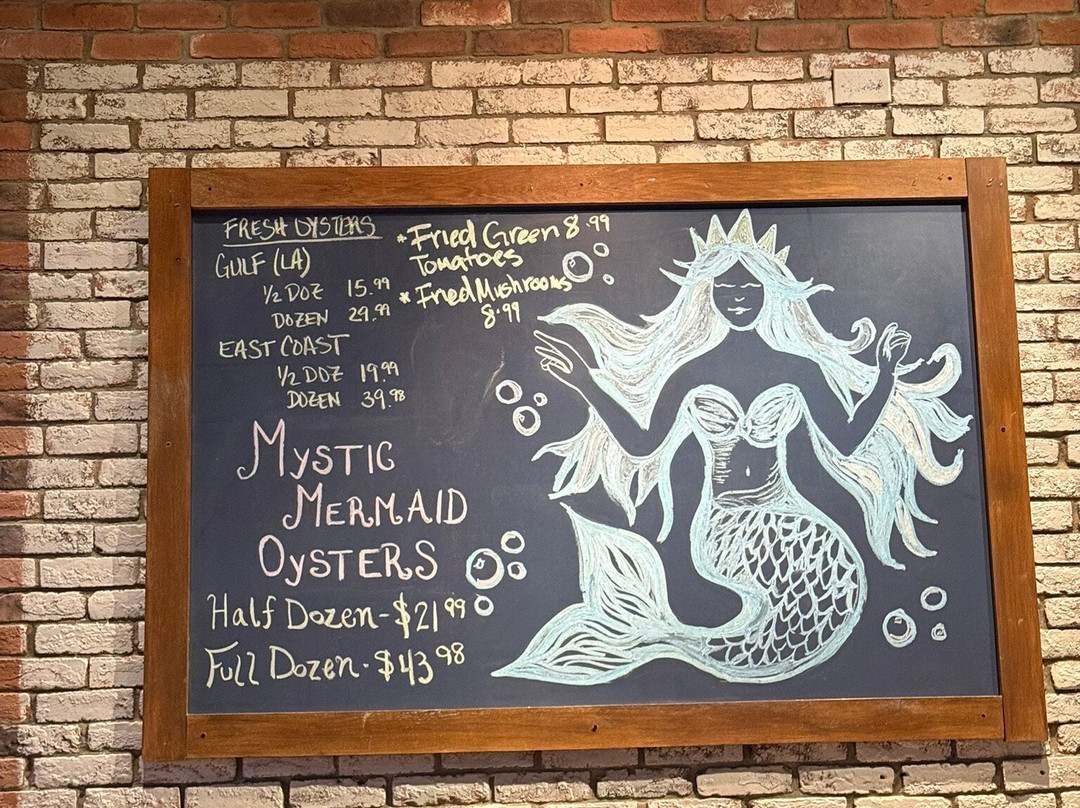 FRESH OYSTERS
GULF (LA)
1/2 DOZ 15.99
DOZEN 29.99
EAST COAST
1/2 DOZ 19.99
DOZEN 39.98
*Fried Green 8.99
Tomatoes
* Fried Mushrooms
8.99
MYSTIC
MERMAID
OySTERS
Half Dozen-$21 99
Full Dozen-$43 98